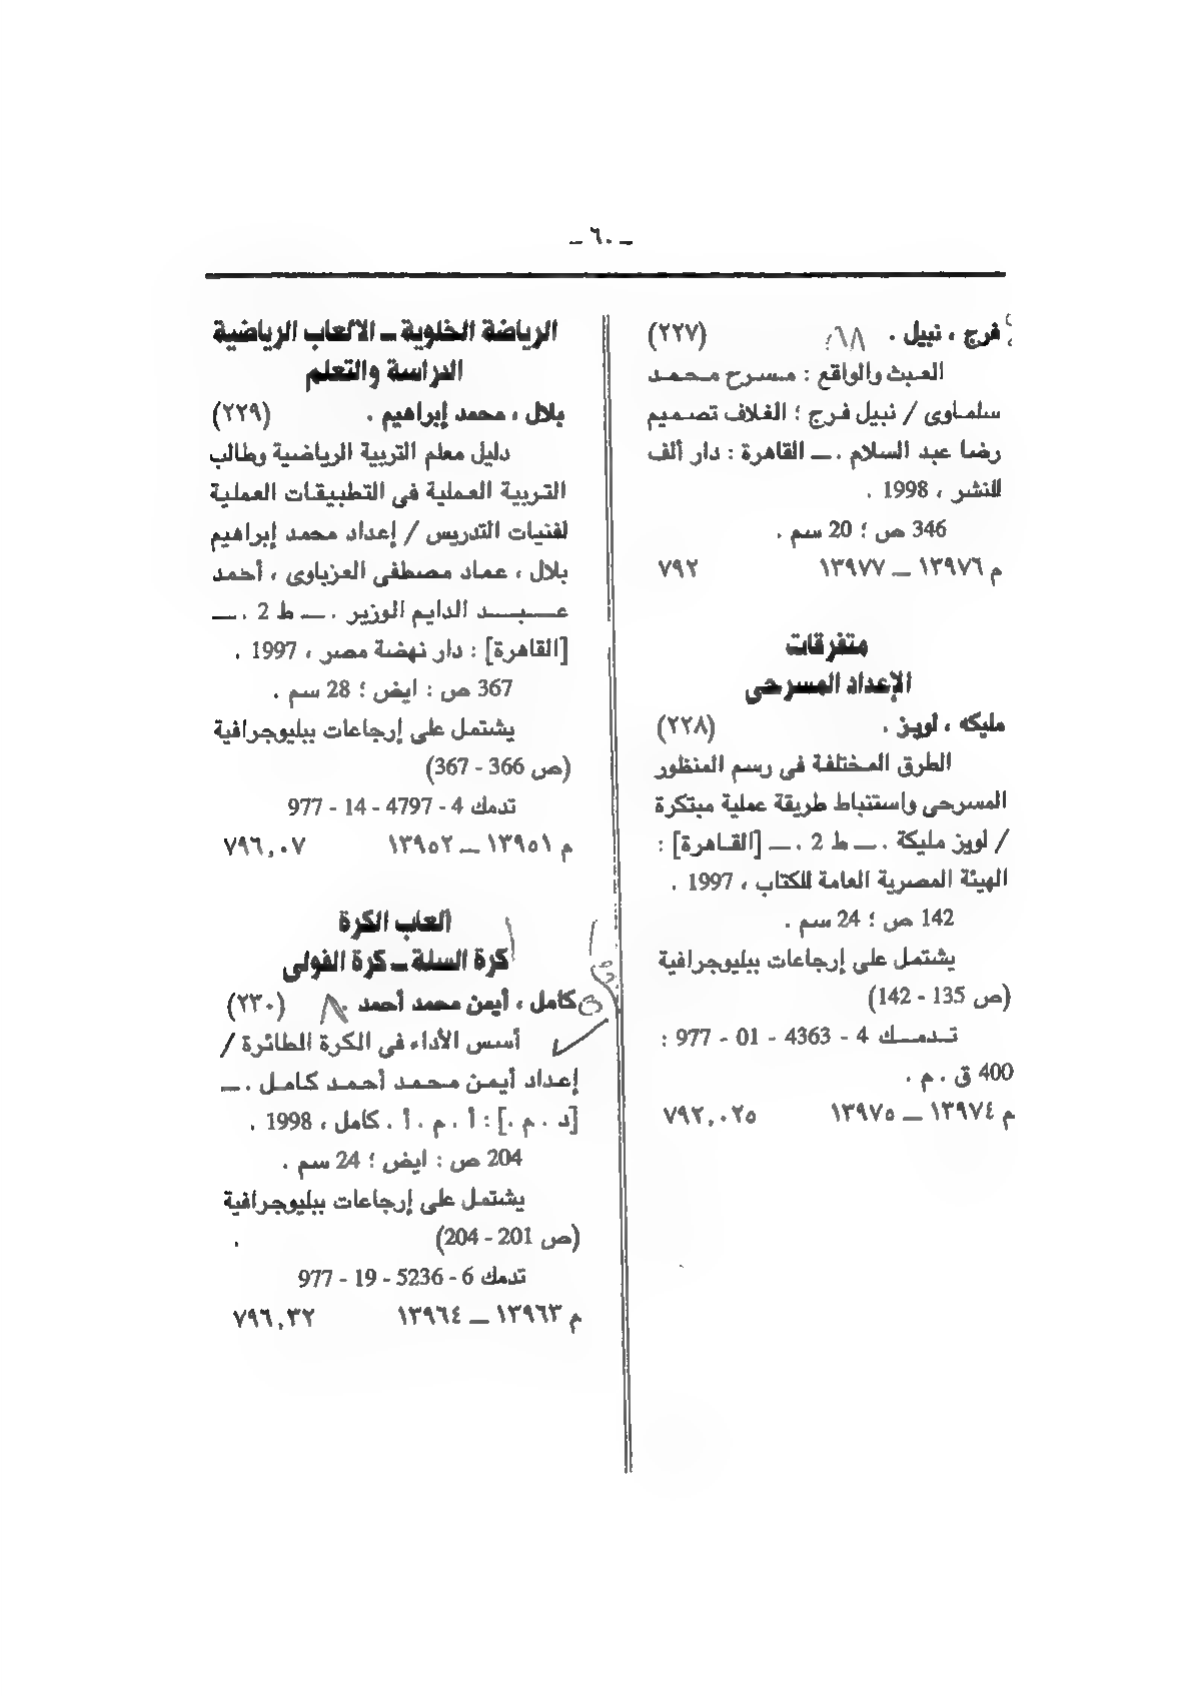 ـ ٦٠ ـ
فرج ، نبيل . (٢٢٧)
العبث والواقع : مسرح محمد
سلماوى / نبيل فرج ؛ الغلاف تصميم
رضا عبد السلام . ــ القاهرة : دار ألف
للنشر ، 1998 .
346 ص ؛ 20 سم .
م ١٣٩٧٦ ــ ١٣٩٧٧ ٧٩٢
متفرقات
الإعداد المسرحى
مليكه ، لويز . (٢٢٨)
الطرق المختلفة فى رسم المنظور
المسرحى واستنباط طريقة عملية مبتكرة
/ لويز مليكة . ــ ط 2 . ــ [القاهرة] :
الهيئة المصرية العامة للكتاب ، 1997 .
142 ص ؛ 24 سم .
يشتمل على إرجاعات ببليوجرافية
(ص 135 - 142)
تدمك 4 - 4363 - 01 - 977 :
400 ق . م .
م ١٣٩٧٤ ــ ١٣٩٧٥ ٧٩٢,٠٢٥
الرياضة الخلوية ــ الألعاب الرياضية
الدراسة والتعلم
بلال ، محمد إبراهيم . (٢٢٩)
دليل معلم التربية الرياضية وطالب
التربية العملية فى التطبيقات العملية
لفنيات التدريس / إعداد محمد إبراهيم
بلال ، عماد مصطفى العزباوى ، أحمد
عبد الدايم الوزير . ــ ط 2 . ــ
[القاهرة] : دار نهضة مصر ، 1997 .
367 ص : ايض ؛ 28 سم .
يشتمل على إرجاعات ببليوجرافية
(ص 366 - 367)
تدمك 4 - 4797 - 14 - 977
م ١٣٩٥١ ــ ١٣٩٥٢ ٧٩٦,٠٧
ألعاب الكرة
كرة السلة ــ كرة الفولى
كامل ، أيمن محمد أحمد . (٢٣٠)
أسس الأداء فى الكرة الطائرة /
إعداد أيمن محمد أحمد كامل . ــ
[د . م .] : أ . م . أ . كامل ، 1998 .
204 ص : ايض ؛ 24 سم .
يشتمل على إرجاعات ببليوجرافية
(ص 201 - 204) .
تدمك 6 - 5236 - 19 - 977
م ١٣٩٦٣ ــ ١٣٩٦٤ ٧٩٦,٣٢